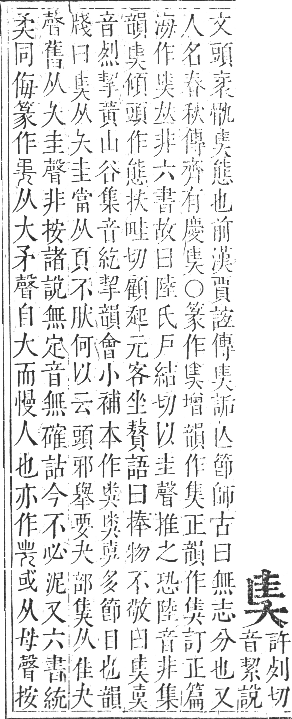 奊許列切
音絜說
文頭衺骫奊態也前漢賈誼傳奊詬亾節師古曰無志分也又
人名春秋傳齊有慶奊○篆作增韻作正韻作訂正篇
海作奊夶非六書故曰陸氏戶結切以圭聲推之恐陸音非集
韻奊傾頭作態扶畦切顧起元客坐贅語曰捧物不敬曰奊
音烈挈黃山谷集音統挈韻會小補本作多節目也韻
牋曰奊从夨圭當从頁不肰何以云頭邪舉要夨部从隹夨
聲舊从大圭聲非按諸說無定音無確詁今不必泥又六書統
同侮篆作从大矛聲自大而慢人也亦作或从母聲按